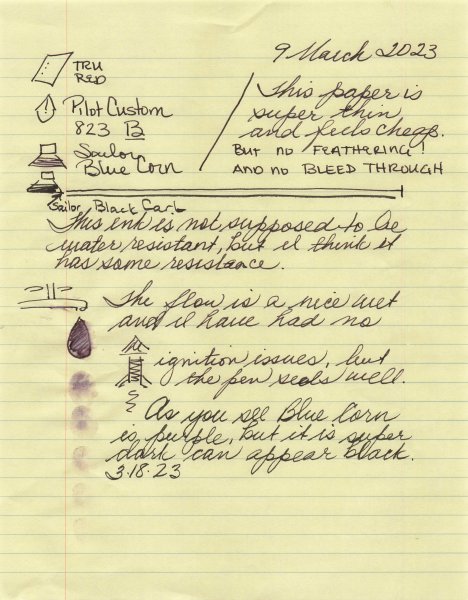 9 March 2023
TRU
RED
Pilot Custom
823 B
Sailor
Blue Corn
This paper is
super thin
and feels cheap.
BUT NO FEATHERING!
AND NO BLEED THROUGH
Sailor Black Carb
This ink is not supposed to be
water resistant, but I think it
has some resistance.
The flow is a nice wet
and I have had no
ignition issues, but
the pen seals well.
As you see Blue Corn
is purple, but it is super
dark can appear black.
3.18.23